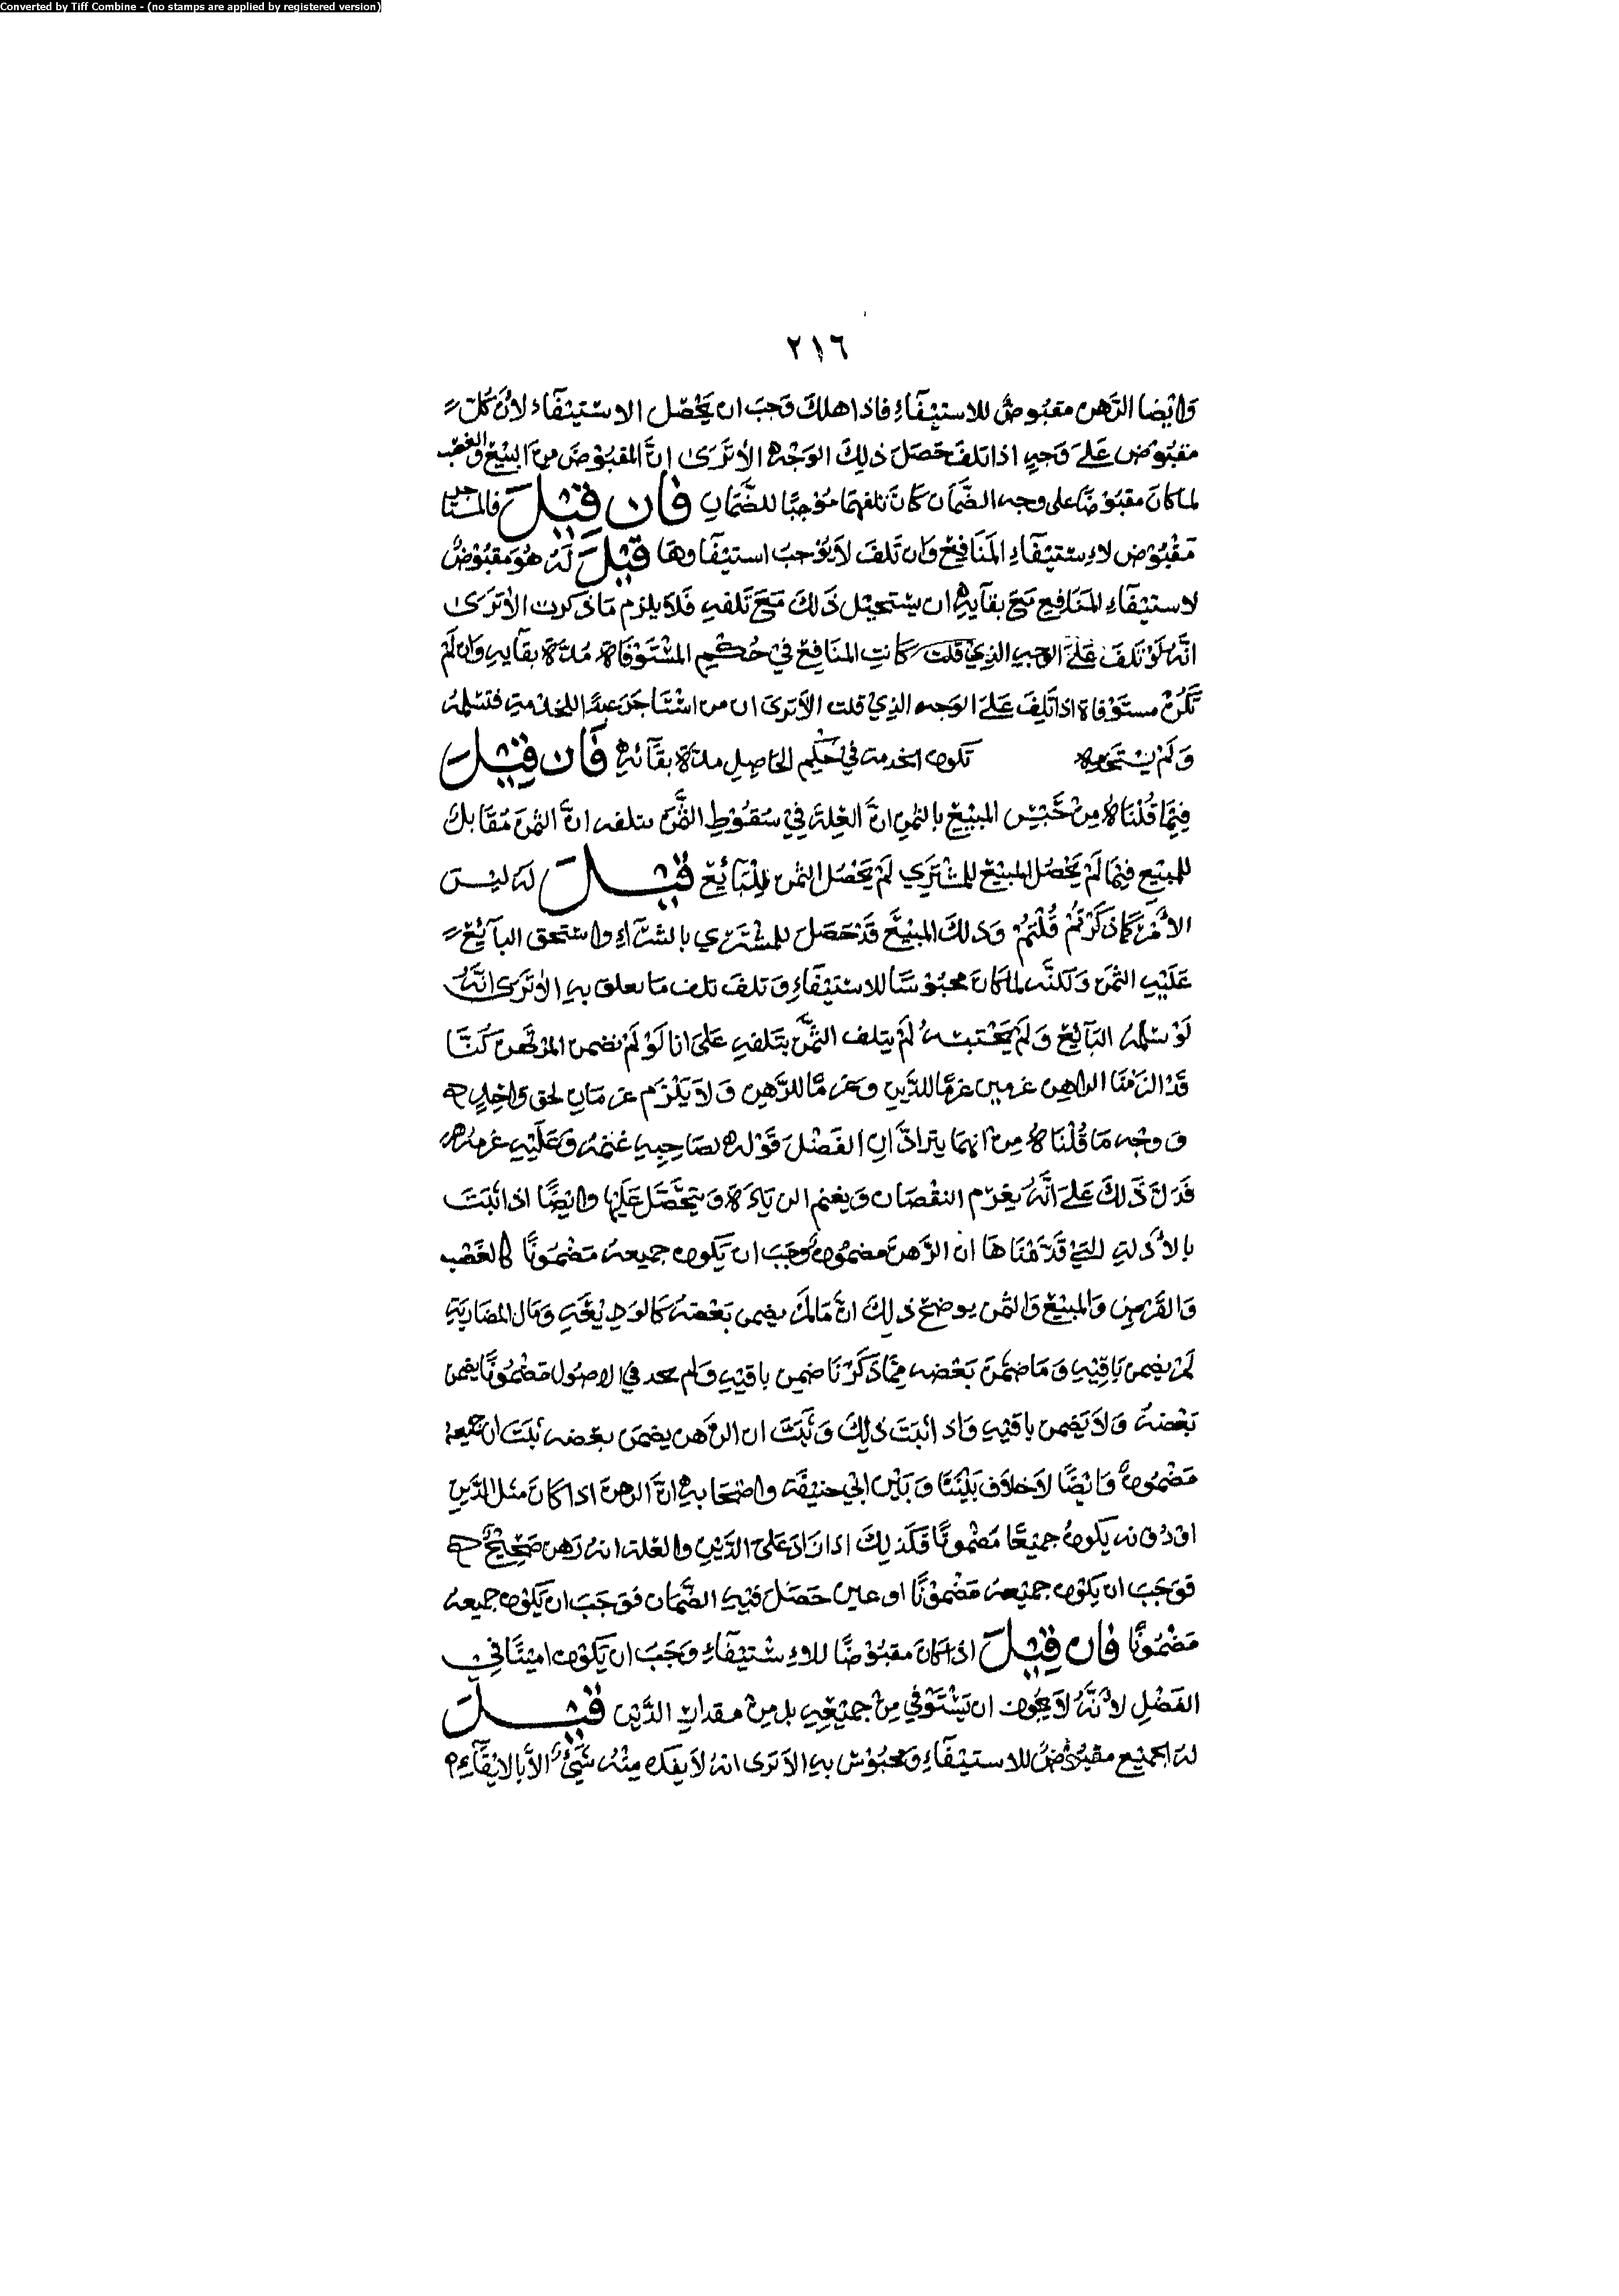 Converted by Tiff Combine - (no stamps are applied by registered version)
٢١٦
وَايْضا الرَّهن مقبُوضٌ للاستيفَآءِ فاذا هلك وَجبَ ان يَحْصُل الاسْتيْفَآء لاَنَّ كُلّ
مقبُوض عَلىَ وَجهٍ اذا تلفَ حَصَلَ ذلِكَ الوَجْه الاَ تَرَى انَّ المقبُوْضَ منَ البيْع وَالغصْب
لما كانَ مقبُوْضًا على وجه الضَّمَان كَانَ تلفهمَا مُوْجبًا للضَّمَانِ فَان قِيْلَ فَالمسْتاجر
مَقْبُوْض لاِسْتيْفَآءِ المَنَافِعْ وَان تَلفَ لاَ يُوْجبُ استيْفَاوهَا قيْلَ لَهُ هُوَ مقبُوْضٌ
لاستيْفَآءِ المَنَافع مَعَ بقآيهِ ان يسْتحيْل ذَلكَ مَعَ تَلفهِ فَلاَ يلزم مَا ذكرت الاَ تَرَى
انَّه لَوْ تلفَ عَلىَ الوجهِ الذِيْ قلتَ كانتِ المنَافع فيْ حُكْمِ المسْتَوْفَاة مُدّة بقآيهِ وَان لَمْ
تَكُنْ مستَوْفاة اذا تَلِفَ عَلىَ الوَجه الذِيْ قلت الاَ تَرىَ ان من اسْتَاجَرَ عبدًا للخدْمةِ فتسَلمهُ
وَلَمْ يسْتخدمه تكون الخدمة في حُكْمِ الحَاصِلِ مدّة بقَآئهِ فَان قِيْلَ
فِيمَا قُلْنَاهُ مِنْ حَبْسِ المبيْعْ بالثمنِ انَّ العِلةَ فِيْ سُقُوْطِ الثَّمن بتلفه انَّ الثمنَ مُقَابل
للمبيْعِ فيْمَا لَمْ يَحْصُل المبيْعْ للمشْتَرِي لَمْ يَحْصُل الثمن للْبَآئِعْ قيْلَ لَهُ ليْسَ
الاَمْرُ كما ذكَرْتُمْ قُلْتُمْ وَذلكَ المبيْعَ قَدْ حَصَلَ للمشْتَرِي بالشرَآءِ وَاسْتحق البآئِعْ
عَلَيْهِ الثَّمنَ وَلكنَّه لما كانَ محبُوْسًا للاستيْفَآءِ وَتلفَ تلف مَا تعلق بهِ الاَ تَرَى انَّهُ
لَوْ سَلمهُ البَآئِعْ وَلَمْ يَحْتبسْهُ لَمْ يتلف الثَّمنُ بتَلفهِ عَلىَ انا لَوْ لَمْ نضمن المرْتَهن كُنَّا
قَدْ الزَمْنَا الراهن غرمين غرمًا للدَّينِ وَغرمًا للرَّهْنِ وَلاَ يَلْزَم غرمَانِ لحق وَاحِدٍ
وَوجْه مَا قُلْنَاهُ مِنْ انهمَا يترادَّانِ الفَضْلَ قَوْله لصَاحِبهِ غنمهُ وَعَلَيْهِ غرمهُ
فَدَلَّ ذَلكَ عَلىَ انَّهُ يغرَم النقْصَان وَيغنم الزيَادَة وَيتحَصَّلَ عَلَيْهَا وَايْضًا اذا ثبَتَ
بالاَدلةِ التيْ قَدَّمْنَاهَا انَّ الرَّهنَ مضمُوْن وَجَبَ ان يكون جميعهُ مَضْمُونًا كالغَصْب
وَالقَرْضِ وَالمبيْعْ وَالثمن يوضحْ ذلكَ انَّ مَا لَمْ يضمن بَعْضهُ كالوَدِيْعَةِ وَمَال المضَاربَةِ
لَمْ يضمن بَاقيْهِ وَمَا ضمنَ بَعْضه ممَّا ذكَرْنَا ضمن باقيْهِ وَلم نجد في الاصُول مَضْمُونًا يضمن
بَعْضهُ وَلاَ يَضمن باقيْهِ وَاذا ثبَتَ ذلِكَ وَثبَتَ ان الرَّهن يضمَن بعْضه ثبَتَ ان جميعهُ
مَضْمُونٌ وَايْضًا لاَ خِلاَف بَيْنَنَا وَبَيْن ابيْ حنيْفَة وَاصْحَابهِ انَّ الرهنَ اذا كانَ مثل الدَّينِ
اوْ دُوْنه يكونُ جميْعًا مَضْمُونًا فَكَذلِكَ اذا زادَ عَلى الدَّيْنِ وَالعلة انهُ رَهن صَحِيْحٌ
فوَجَبَ ان يَكُوْن جميْعهُ مَضْمُوْنًا او عين حَصَلَ فيْهِ الضَّمَان فوَجَبَ ان يَكُوْن جميعهُ
مَضْمُوْنًا فَان قِيْلَ اذا كانَ مقبُوْضًا للاِسْتيْفَآءِ وَجَبَ ان يَكُوْن امِيْنًا فِيْ
الفَضْلِ لاَنَّهُ لاَ يجُوز ان يَسْتَوْفي مِنْ جميْعِهِ بل مِنْ مقدارِ الدَّيْنِ قيْلَ
لهُ الجميْع مقبُوْضٌ للاستيْفَآءِ وَمحبُوْسٌ بهِ الاَ تَرى انهُ لاَ يفكّ مِنْهُ شَيْءٌ الاَّ بالايْفَآءِ